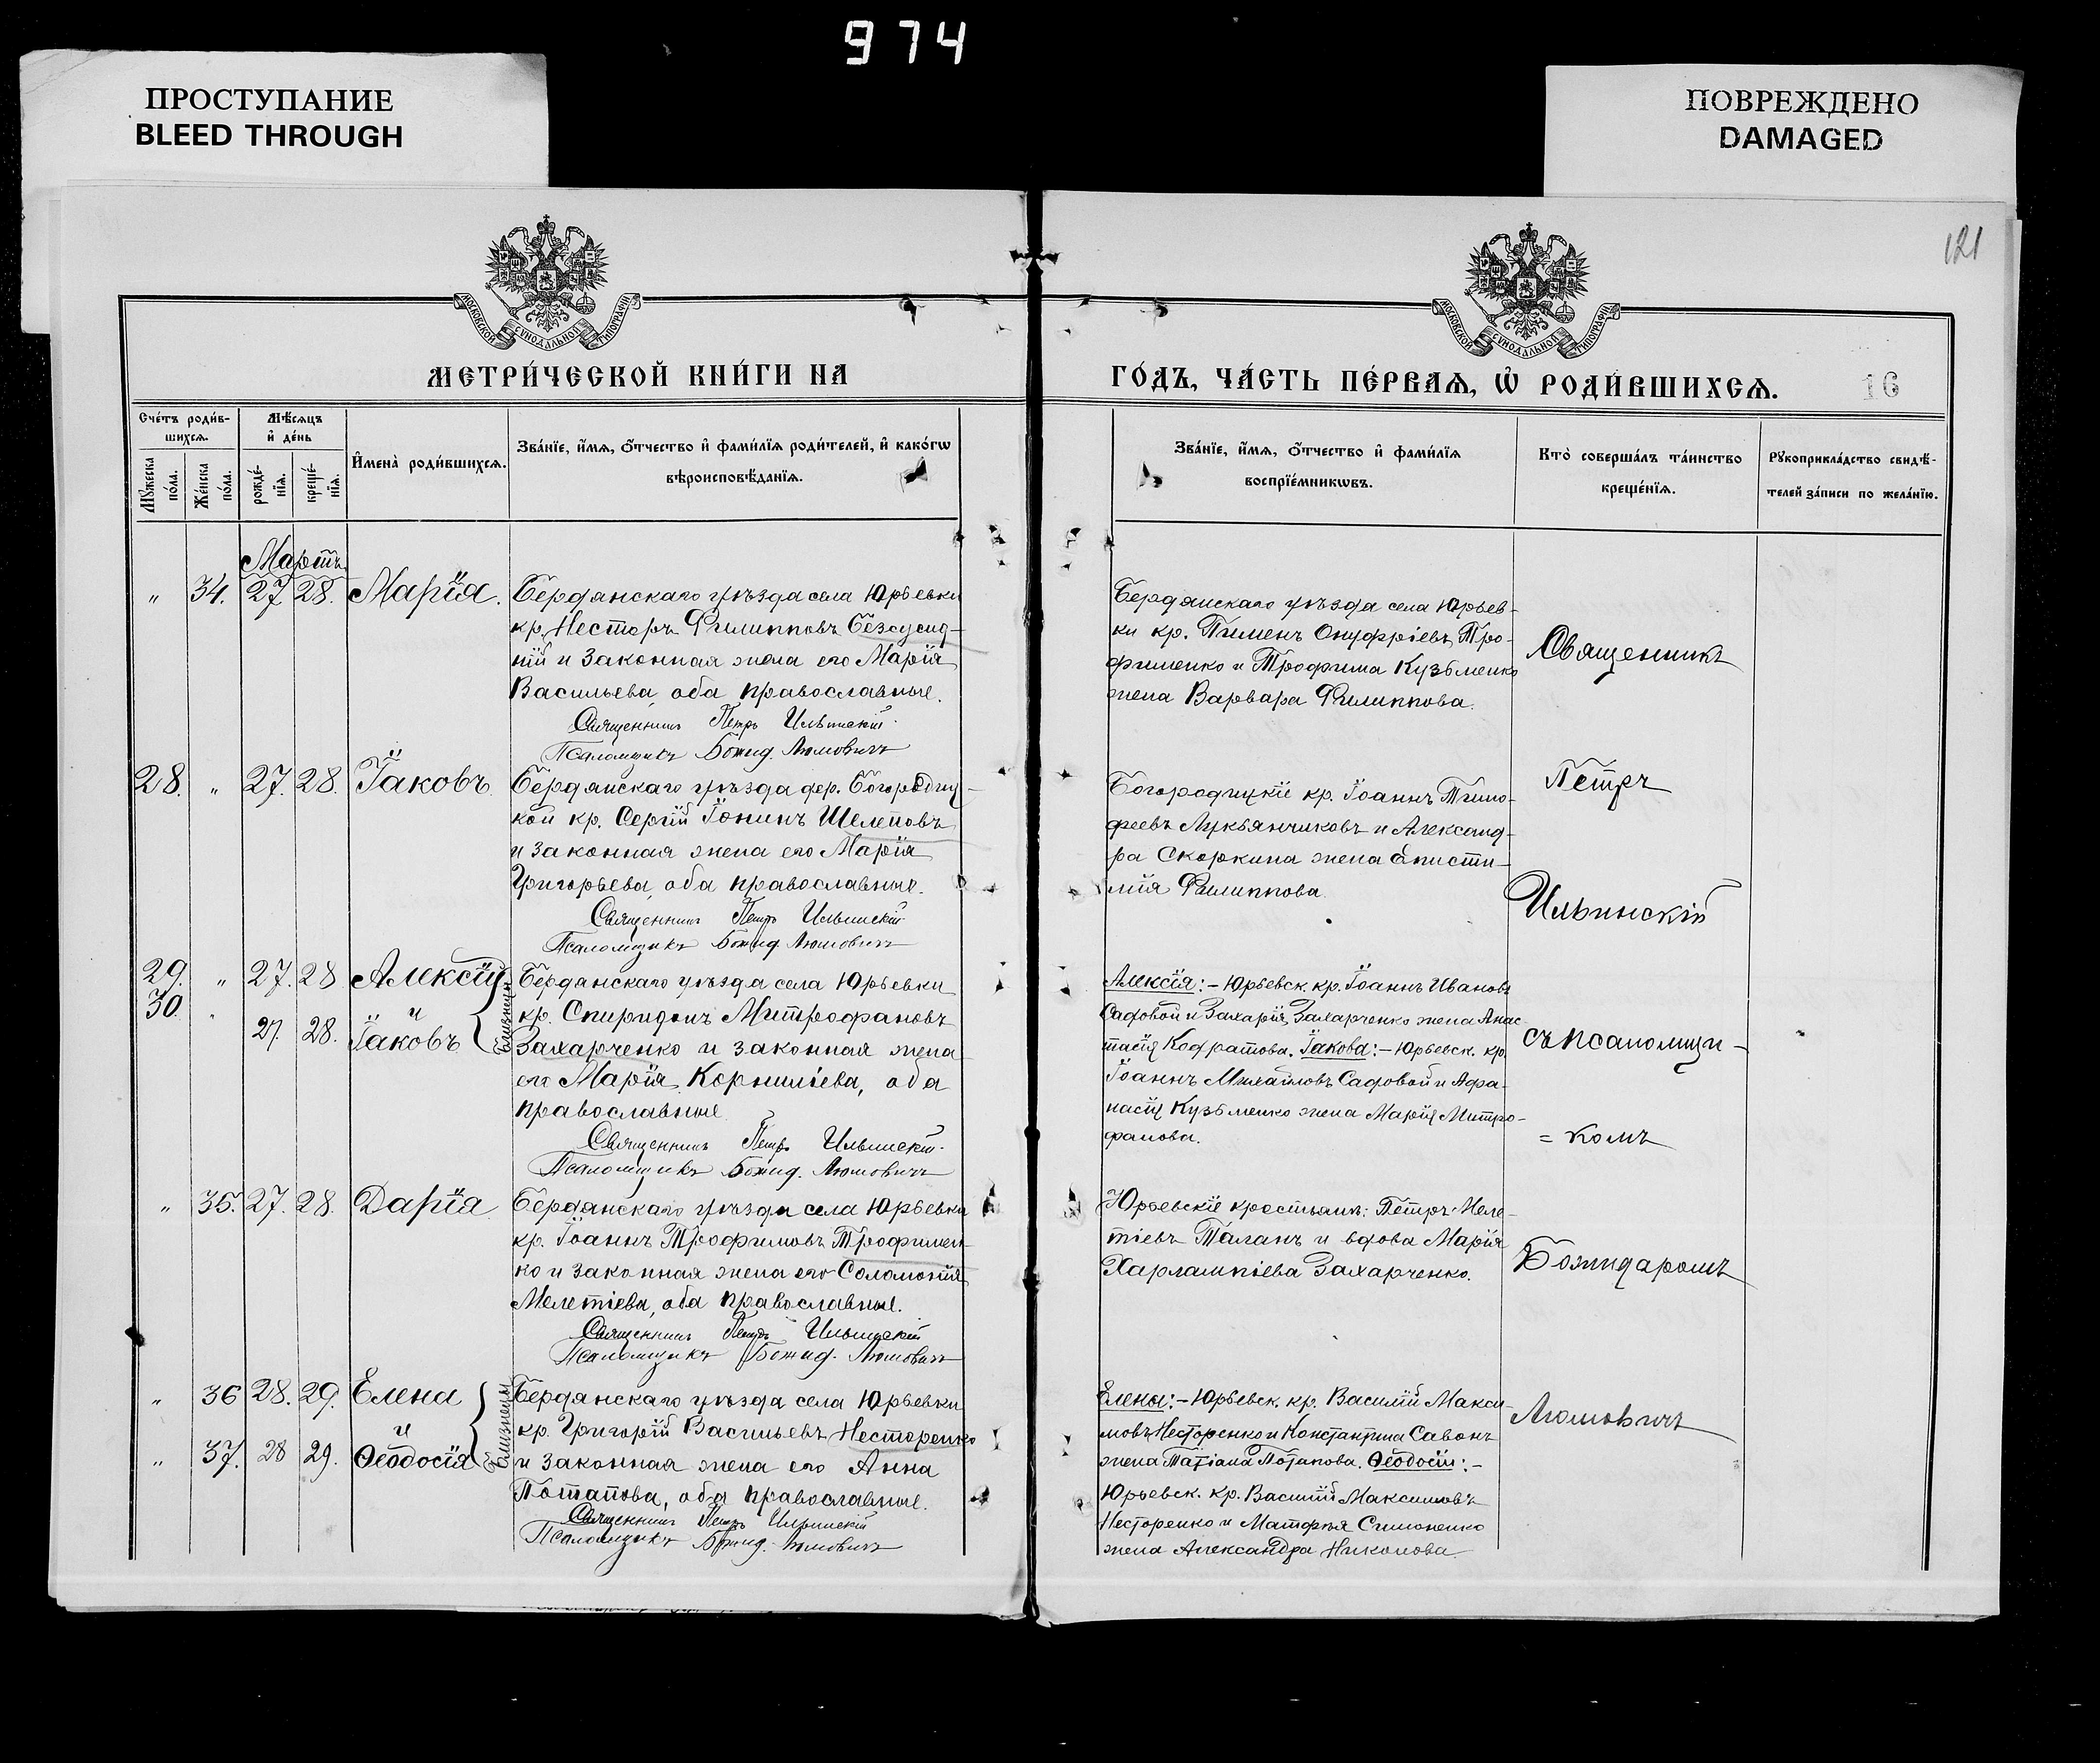 974
ПРОСТУПАНИЕ
BLEED THROUGH
ПОВРЕЖДЕНО
DAMAGED
121
МОСКОВСКОЙ СУНОДАЛЬНОЙ ТИПОГРАФІИ
МОСКОВСКОЙ СУНОДАЛЬНОЙ ТИПОГРАФІИ
МЕТРИ́ЧЕСКОЙ КНИ́ГИ НА
ГО́ДЪ, ЧА́СТЬ ПЕ́РВАѦ, Ѡ҆ РОДИ́ВШИХСѦ.
16
Сче́тъ роди́в-
шихсѧ.
Мꙋ́жеска по́ла.
Же́нска по́ла.
Мѣ́сѧцъ
и҆ де́нь
рожде́-
нїѧ.
креще́-
нїѧ.
И҆мена̀ роди́вшихсѧ.
Зва́нїе, и҆́мѧ, ѻ҆́тчество и҆ фами́лїѧ роди́телей, и҆ како́гѡ
вѣроисповѣ́данїѧ.
Зва́нїе, и҆́мѧ, ѻ҆́тчество и҆ фами́лїѧ
воспрїе́мникѡвъ.
Кто̀ соверша́лъ та́инство
креще́нїѧ.
Рꙋкоприкла́дство свидѣ́-
телей за́писи по жела́нїю.
Мартъ.
" 34. 27 28. Марія.
Бердянскаго уѣзда села Юрьевки
кр. Несторъ Филипповъ Безсуид-
ній и законная жена его Марія
Васильева, оба православные.
Священникъ Петръ Ильинскій
Псаломщикъ Божид. Люмовичъ
Бердянскаго уѣзда села Юрьев-
ки кр. Пименъ Онуфріевъ Тро-
фименко и Трофима Кузьменко
жена Варвара Филиппова.
28. " 27. 28. Іаковъ
Бердянскаго уѣзда дер. Богородиц-
кой кр. Сергій Іонинъ Шелеповъ
и законная жена его Марія
Григорьева, оба православные.
Священникъ Петръ Ильинскій
Псаломщикъ Божид. Люмовичъ
Богородицкіе кр. Іоаннъ Тимо-
феевъ Лукьянчиковъ и Александ-
ра Скоркина жена Еписти-
мія Филиппова
29. " 27. 28 Алексій
30. " и
27. 28. Іаковъ
близнецы
Бердянскаго уѣзда села Юрьевки
кр. Спиридонъ Митрофановъ
Захарченко и законная жена
его Марія Корниліева, оба
православные
Священникъ Петръ Ильинскій
Псаломщикъ Божид. Люмовичъ
Алексія:- Юрьевск. кр. Іоаннъ Ивановъ
Садовой и Захарія Захарченко жена Анас-
тасія Кодратова. Іакова:- Юрьевск. кр.
Іоаннъ Михайловъ Садовой и Афа-
насія Кузьменко жена Марія Митро-
фанова.
" 35. 27. 28. Дарія
Бердянскаго уѣзда села Юрьевки
кр. Іоаннъ Трофимовъ Трофимен-
ко и законная жена его Соломонія
Мелетіева, оба православные.
Священникъ Петръ Ильинскій
Псаломщикъ Божид. Люмовичъ
Юрьевскіе крестьяне: Петръ Меле-
тіевъ Таланъ и вдова Марія
Харлампіева Захарченко.
" 36 28. 29. Елена
и
" 37. 28 29. Ѳеодосія
близнецы
Бердянскаго уѣзда села Юрьевки
кр. Григорій Васильевъ Несторенко
и законная жена его Анна
Потапова, оба православные.
Священникъ Петръ Ильинскій
Псаломщикъ Божид. Люмовичъ
Елены:- Юрьевск. кр. Василій Макси-
мовъ Несторенко и Константина Савонъ
жена Татіана Потапова. Ѳеодосіи:-
Юрьевск. кр. Василій Максимовъ
Несторенко и Матфея Симоненко
жена Александра Никонова
Священникъ
Петръ
Ильинскій
съ псаломщи-
=комъ
Божидаромъ
Люмовичъ